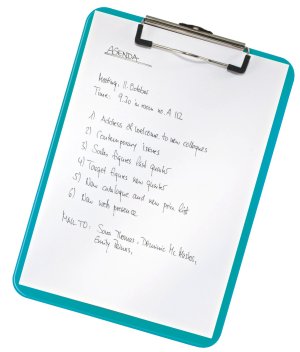 AGENDA
Meeting: 11. October
Time: 9.30 in room no. A 112
1) Address of welcome to new colleagues
2) Contemporary issues
3) Sales figures last quarter
4) Target figures new quarter
5) New catalogue and new price list
6) New web presence
MAIL TO: Thomas, Dominic Mc
Emily